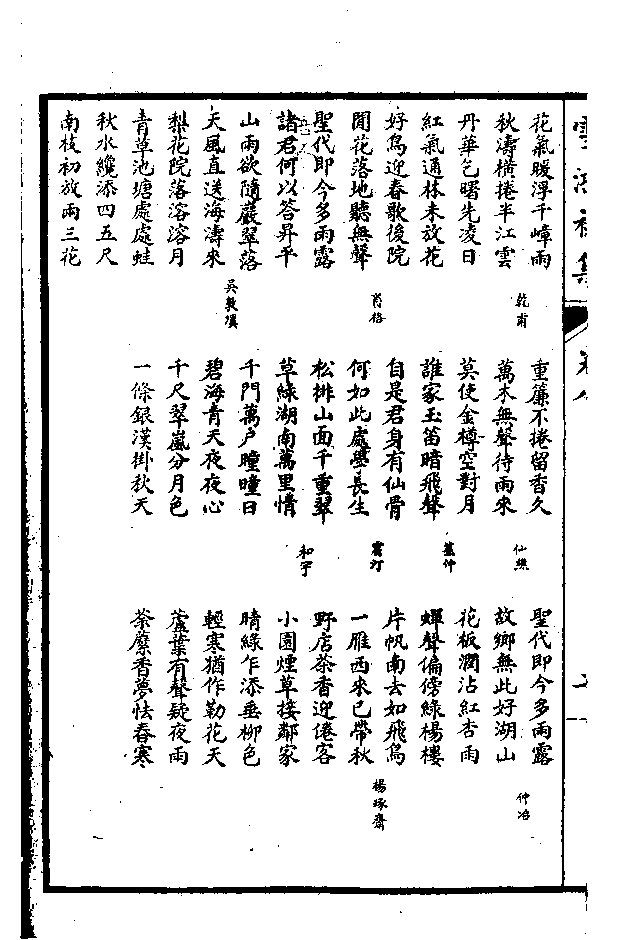 花氣暖浮千嶂雨
乾甫
重簾不捲留香久
聖代即今多雨露
仲冶
秋濤橫捲半江雲
萬木無聲待雨來
故鄉無此好湖山
丹華乞曙先凌日
莫使金樽空對月
花板潤沾紅杏雨
紅氣通林未放花
誰家玉笛暗飛聲
蟬聲偏傍綠楊樓
好鳥迎春歌後院
自是君身有仙骨
雲汀
片帆南去如飛鳥
楊琢齋
閒花落地聽無聲
何如此處學長生
一雁西來已帶秋
聖代即今多雨露
松排山面千重翠
和宇
野店茶香迎倦客
諸君何以答昇平
草綠湖南萬里情
小園煙草接鄰家
山雨欲隨巖翠落
千門萬戶曈曈日
晴綠乍添垂柳色
天風直送海濤來
碧海青天夜夜心
輕寒猶作勒花天
梨花院落溶溶月
千尺翠嵐分月色
蘆葉有聲疑夜雨
青草池塘處處蛙
一條銀漢掛秋天
荼蘼香夢怯春寒
秋水纔添四五尺
南枝初放兩三花